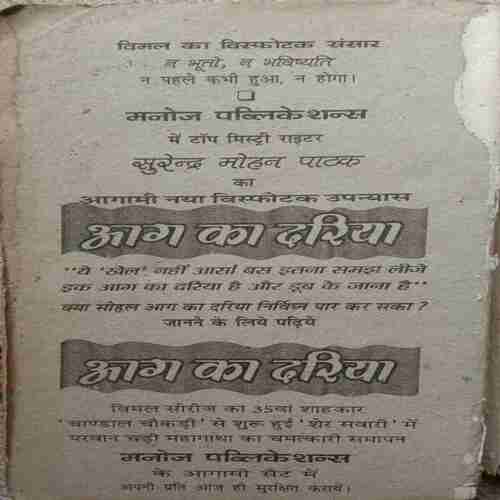 विमल का विस्फोटक संसार
न भूतो, न भविष्यति
न पहले कभी हुआ, न होगा।
मनोज पब्लिकेशन्स
में टॉप मिस्ट्री राइटर
सुरेन्द्र मोहन पाठक
का
आगामी नया विस्फोटक उपन्यास
आग का दरिया
"ये 'खेल' नहीं आसां बस इतना समझ लीजे
इक आग का दरिया है और डूब के जाना है"
क्या सोहल आग का दरिया निर्विघ्न पार कर सका ?
जानने के लिये पढ़ियें
आग का दरिया
विमल सीरीज का 35वां शाहकार
'चाण्डाल चौकड़ी' से शुरू हुई 'शेर सवारी' में
परवान चढ़ी महागाथा का चमत्कारी समापन
मनोज पब्लिकेशन्स
के आगामी सैट में
अपनी प्रति आज ही सुरक्षित करायें।